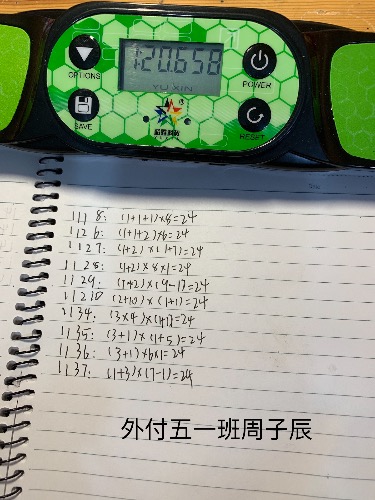 OPTIONS
1:20.658
POWER
YU XIN
SAVE
RESET
1118: (1+1+1)×8=24
1126: (1+1+2)×6=24
1127: (1+2)×(1+7)=24
1128: (1+2)×8×1=24
1129: (1+2)×(9-1)=24
11210 (2+10)×(1+1)=24
1134: (3×4)×(1+1)=24
1135: (3+1)×(1+5)=24
1136: (3+1)×6×1=24
1137: (1+3)×(7-1)=24
外付五一班周子辰